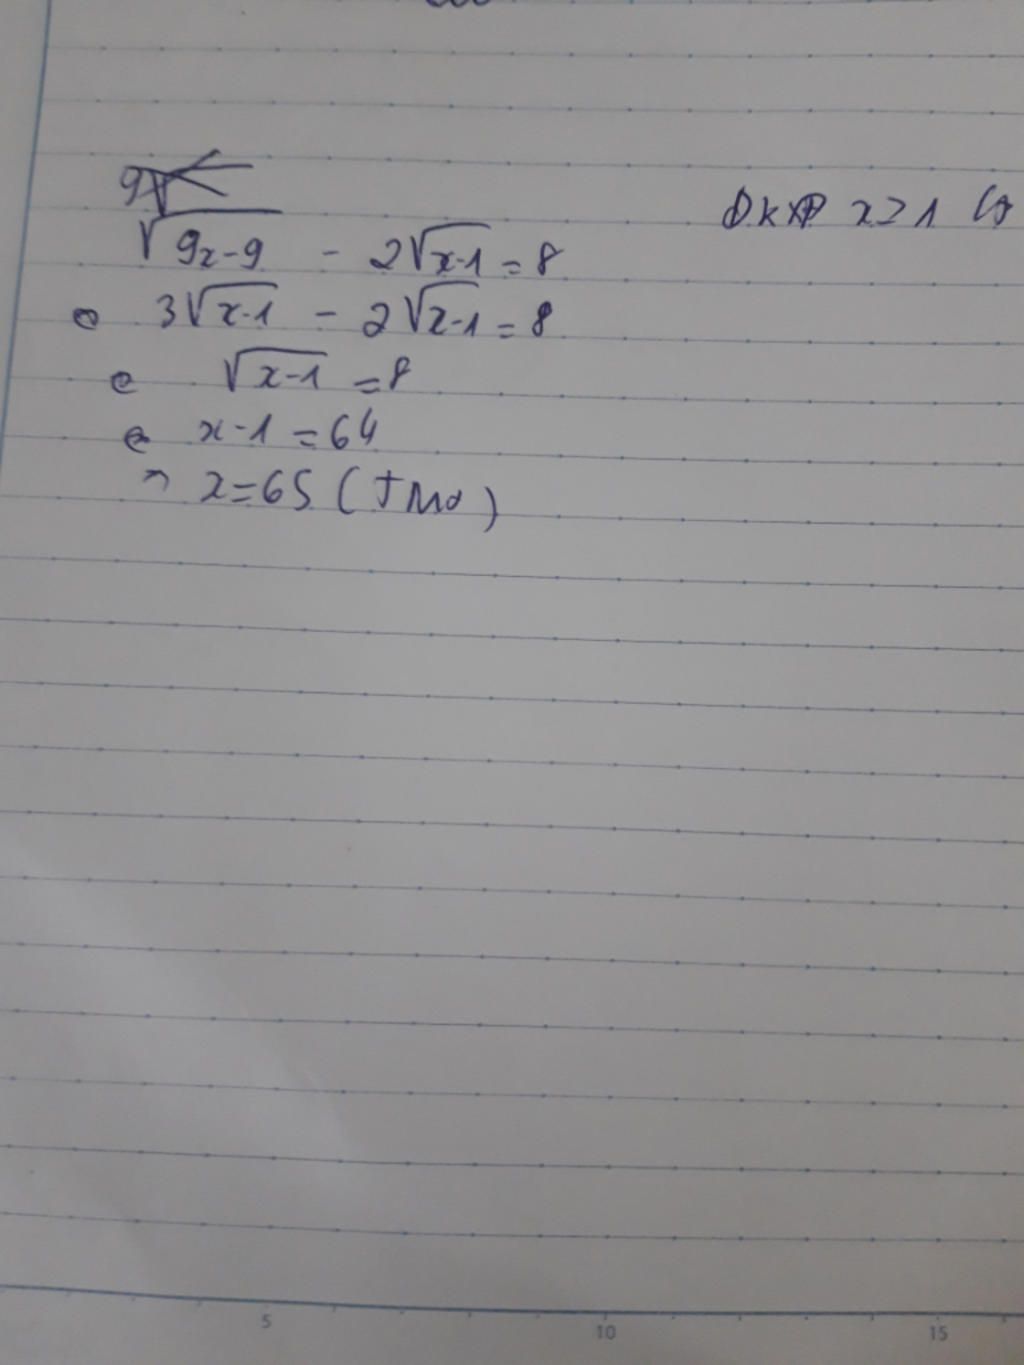 ĐKXĐ x>1
√9x-9 - 2√x-1 = 8
3√x-1 - 2√x-1 = 8
√x-1 = 8
x-1 = 64
x=65 (TMĐ)
5 10 15